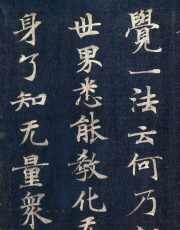 覺一法云何乃
世界悉能教化
身了知无量衆